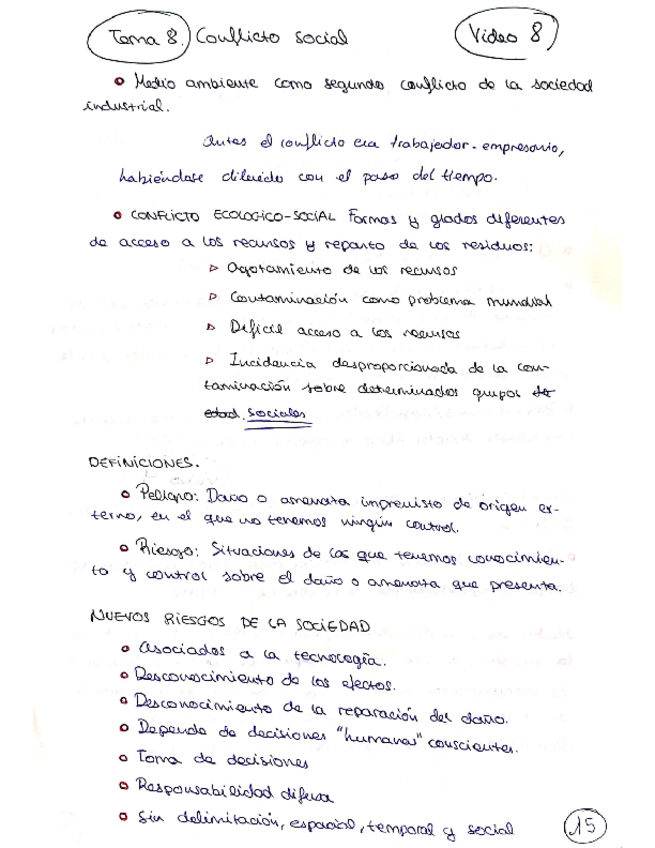 Tema 8. Conflicto social
Video 8
Medio ambiente como segundo conflicto de la sociedad
industrial.
Antes el conflicto era trabajador - empresario,
habiéndose diluido con el paso del tiempo.
CONFLICTO ECOLOGICO-SOCIAL Formas y grados diferentes
de acceso a los recursos y reparto de los residuos:
Agotamiento de los recursos
Contaminación como problema mundial
Dificil acceso a los recursos
Incidencia desproporcionada de la con-
taminación sobre determinados grupos de
edad. Sociales
DEFINICIONES.
Peligro: Daño o amenaza imprevisto de origen ex-
terno, en el que no tenemos ningún control.
Riesgo: Situaciones de las que tenemos conocimien-
to y control sobre el daño o amenaza que presenta.
NUEVOS RIESGOS DE LA SOCIEDAD
Asociados a la tecnología.
Desconocimiento de los efectos.
Desconocimiento de la reparación del daño.
Depende de decisiones "humanas" conscientes.
Toma de decisiones
Responsabilidad difusa
Sin delimitación, espacial, temporal y social
15